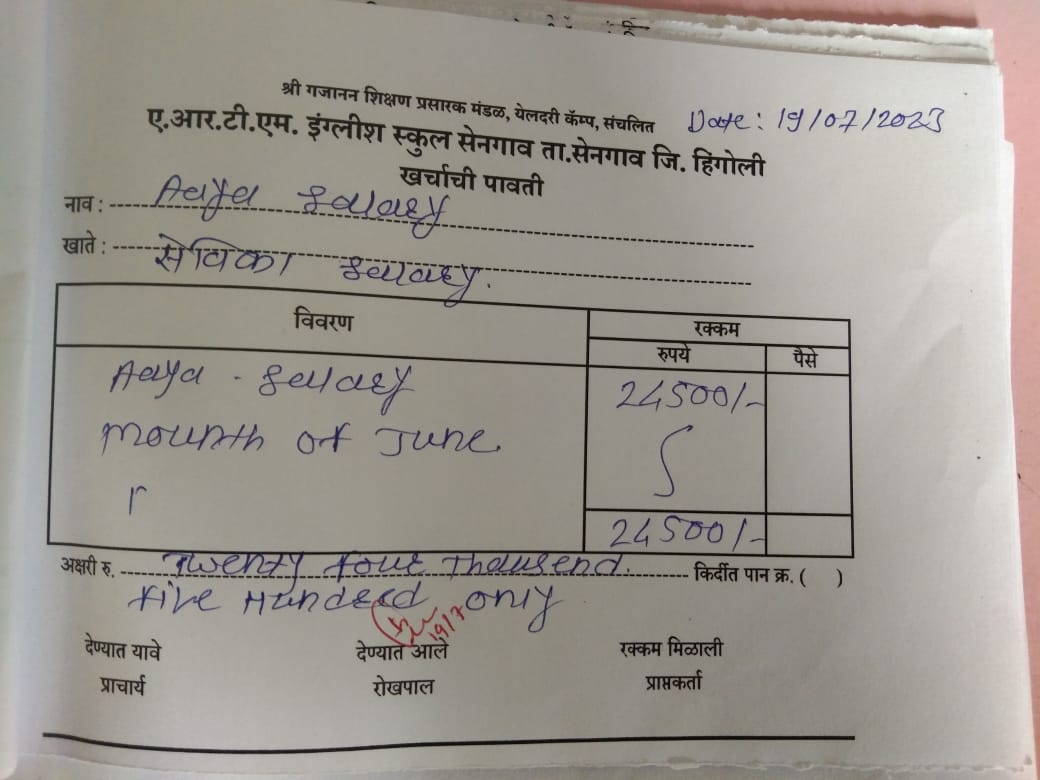 श्री गजानन शिक्षण प्रसारक मंडळ, येलदरी कॅम्प, संचलित Date: 19/07/2023
ए.आर.टी.एम. इंग्लीश स्कुल सेनगाव ता.सेनगाव जि. हिंगोली
खर्चाची पावती
नाव : Aaya Salary
खाते : सेविका Salary.
विवरण रक्कम
रुपये पैसे
Aaya - Salary 24500/-
Mounth of June
24500/-
अक्षरी रु. Twenty four Thousend. किर्दीत पान क्र. ( )
five Hundred only
19/7
देण्यात यावे देण्यात आले रक्कम मिळाली
प्राचार्य रोखपाल प्राप्तकर्ता